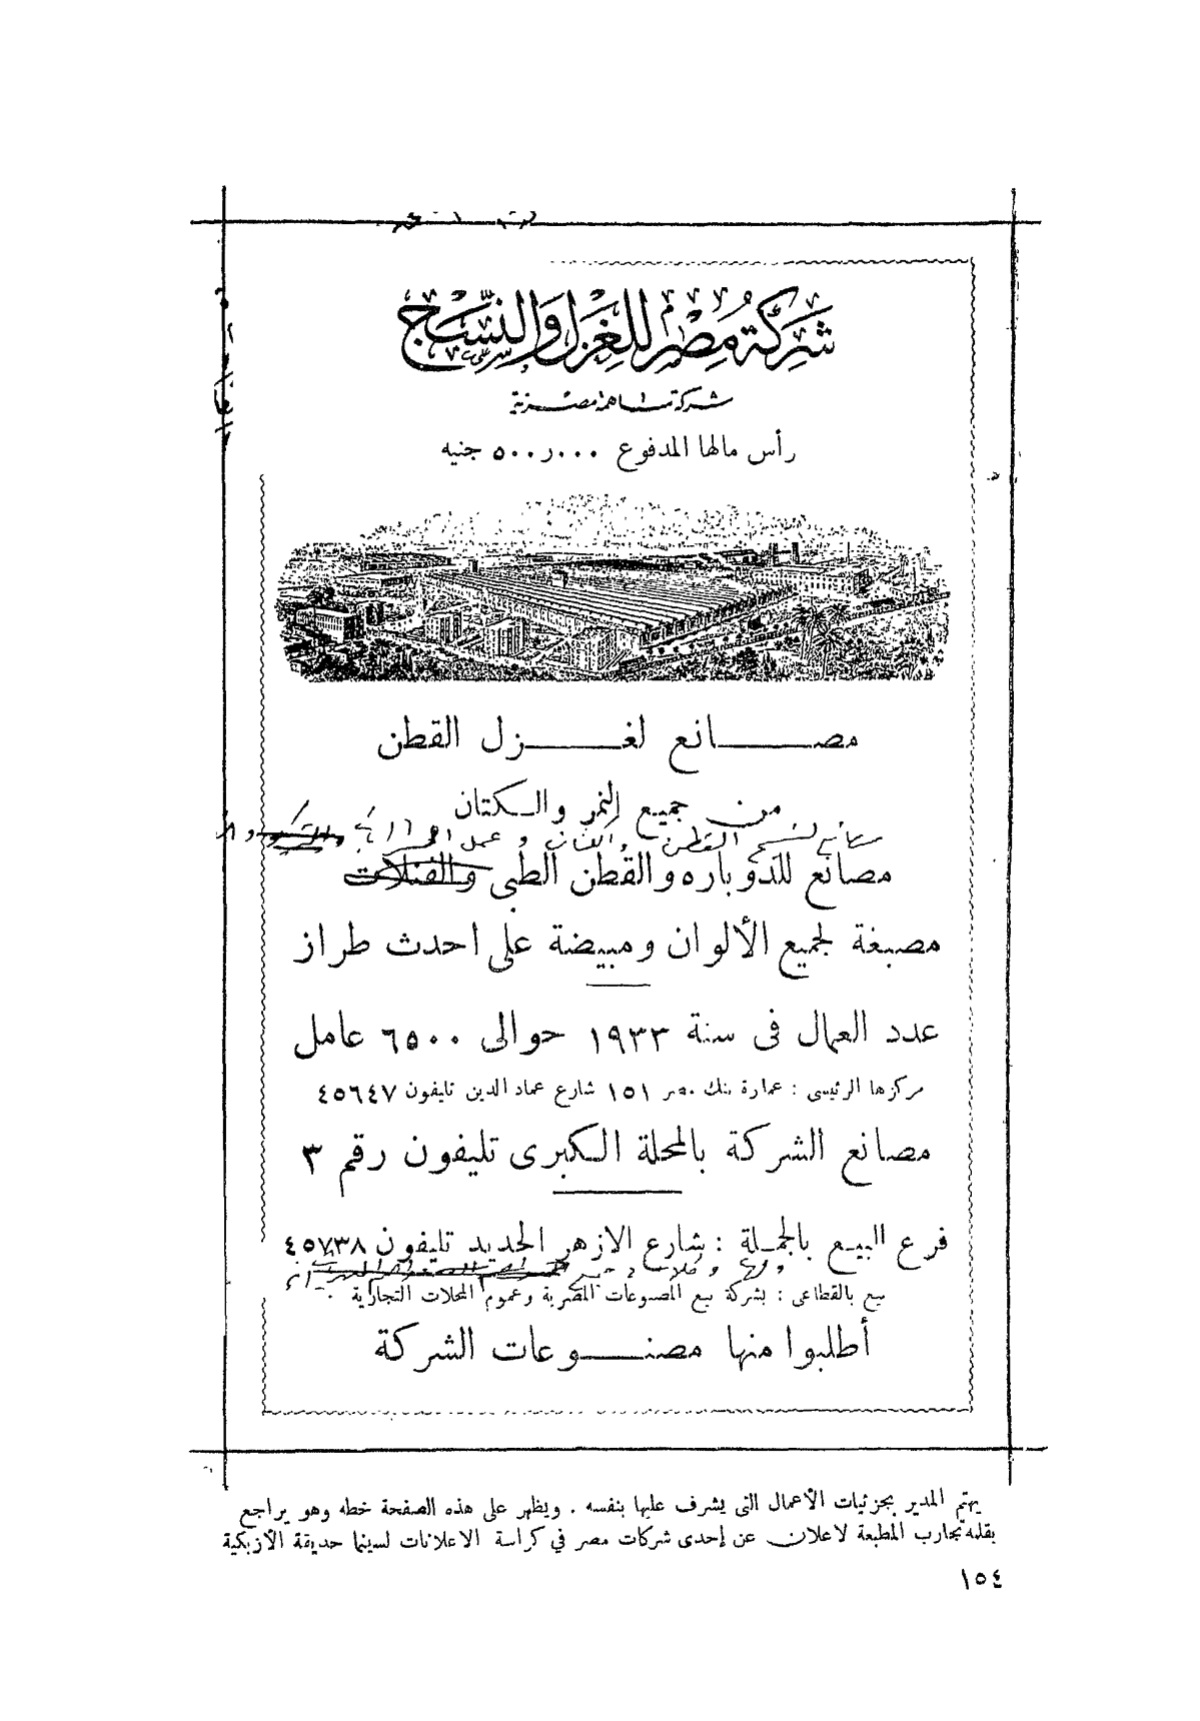 شركة مصر للغزل والنسج
شركة مساهمة مصرية
رأس مالها المدفوع ٥٠٠ر٠٠٠ جنيه
مصانع لغزل القطن
من جميع النمر والكتان
مصانع لنسيج القطن والكتان وعمل
مصانع للدوباره والقطن الطبى والفنلات
مصبغة لجميع الألوان ومبيضة على احدث طراز
عدد العمال فى سنة ١٩٣٣ حوالى ٦٥٠٠ عامل
مركزها الرئيسى : عمارة بنك مصر ١٥١ شارع عماد الدين تليفون ٤٥٦٤٧
مصانع الشركة بالمحلة الكبرى تليفون رقم ٣
فرع البيع بالجملة : شارع الازهر الجديد تليفون ٤٥٧٣٨
بيع بالقطاعى : بشركة بيع المصنوعات المصرية وعموم المحلات التجارية
أطلبوا منها مصنوعات الشركة
يهتم المدير بجزئيات الأعمال التى يشرف عليها بنفسه . ويظهر على هذه الصفحة خطه وهو يراجع
بقلمه تجارب المطبعة لاعلان عن إحدى شركات مصر في كراسة الاعلانات لسينما حديقة الأزبكية
١٥٤